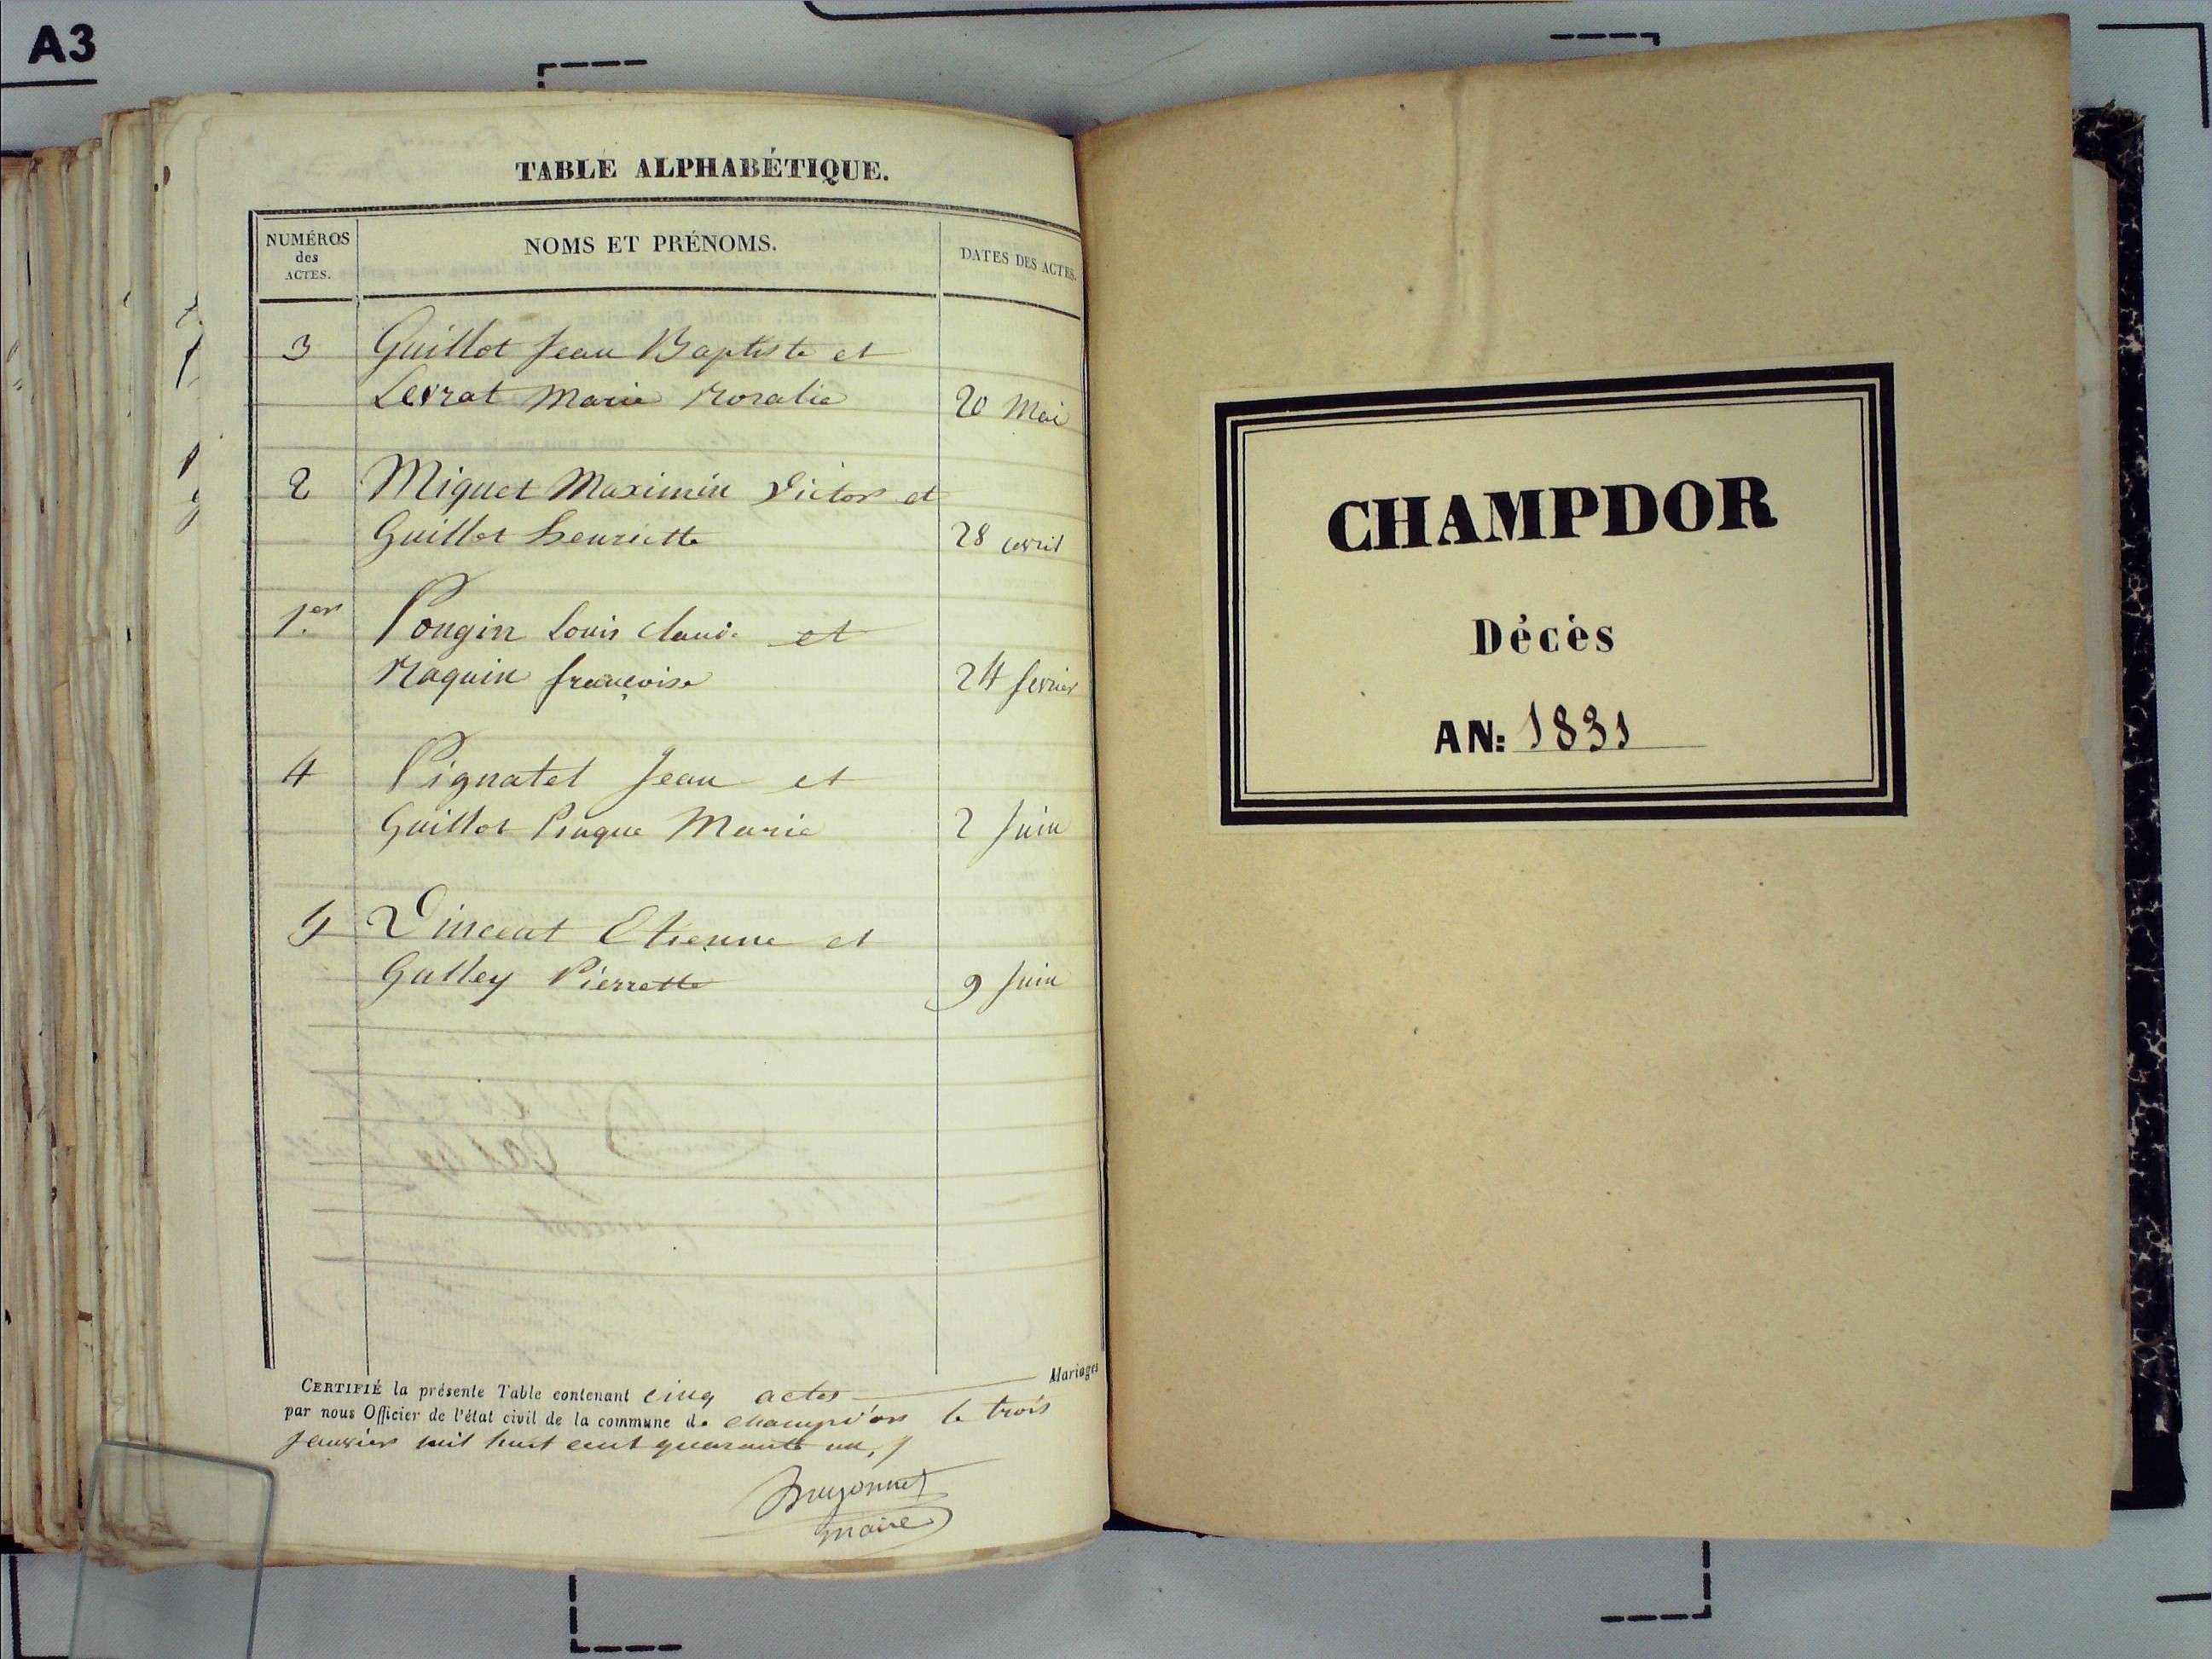 A3
TABLE ALPHABÉTIQUE.
NUMÉROS
des
ACTES.
NOMS ET PRÉNOMS.
DATES DES ACTES.
3 Guillot Jean Baptiste et
Levrat Marie Rosalie 20 Mai
2 Miguet Maximin Victor et
Guillot henriette 28 avril
1.er Pongin Louis Claude et
Raquin françoise 24 fevrier
4 Pignatel Jean et
Guillot Marie 2 Juin
5 Vincent Etienne et
Galley Pierrette 9 Juin
CERTIFIÉ la présente Table contenant cinq actes Mariages
par nous Officier de l'état civil de la commune de champd'or le trois
Janvier mil huit cent quarante un,
maire
CHAMPDOR
Décès
AN: 1831